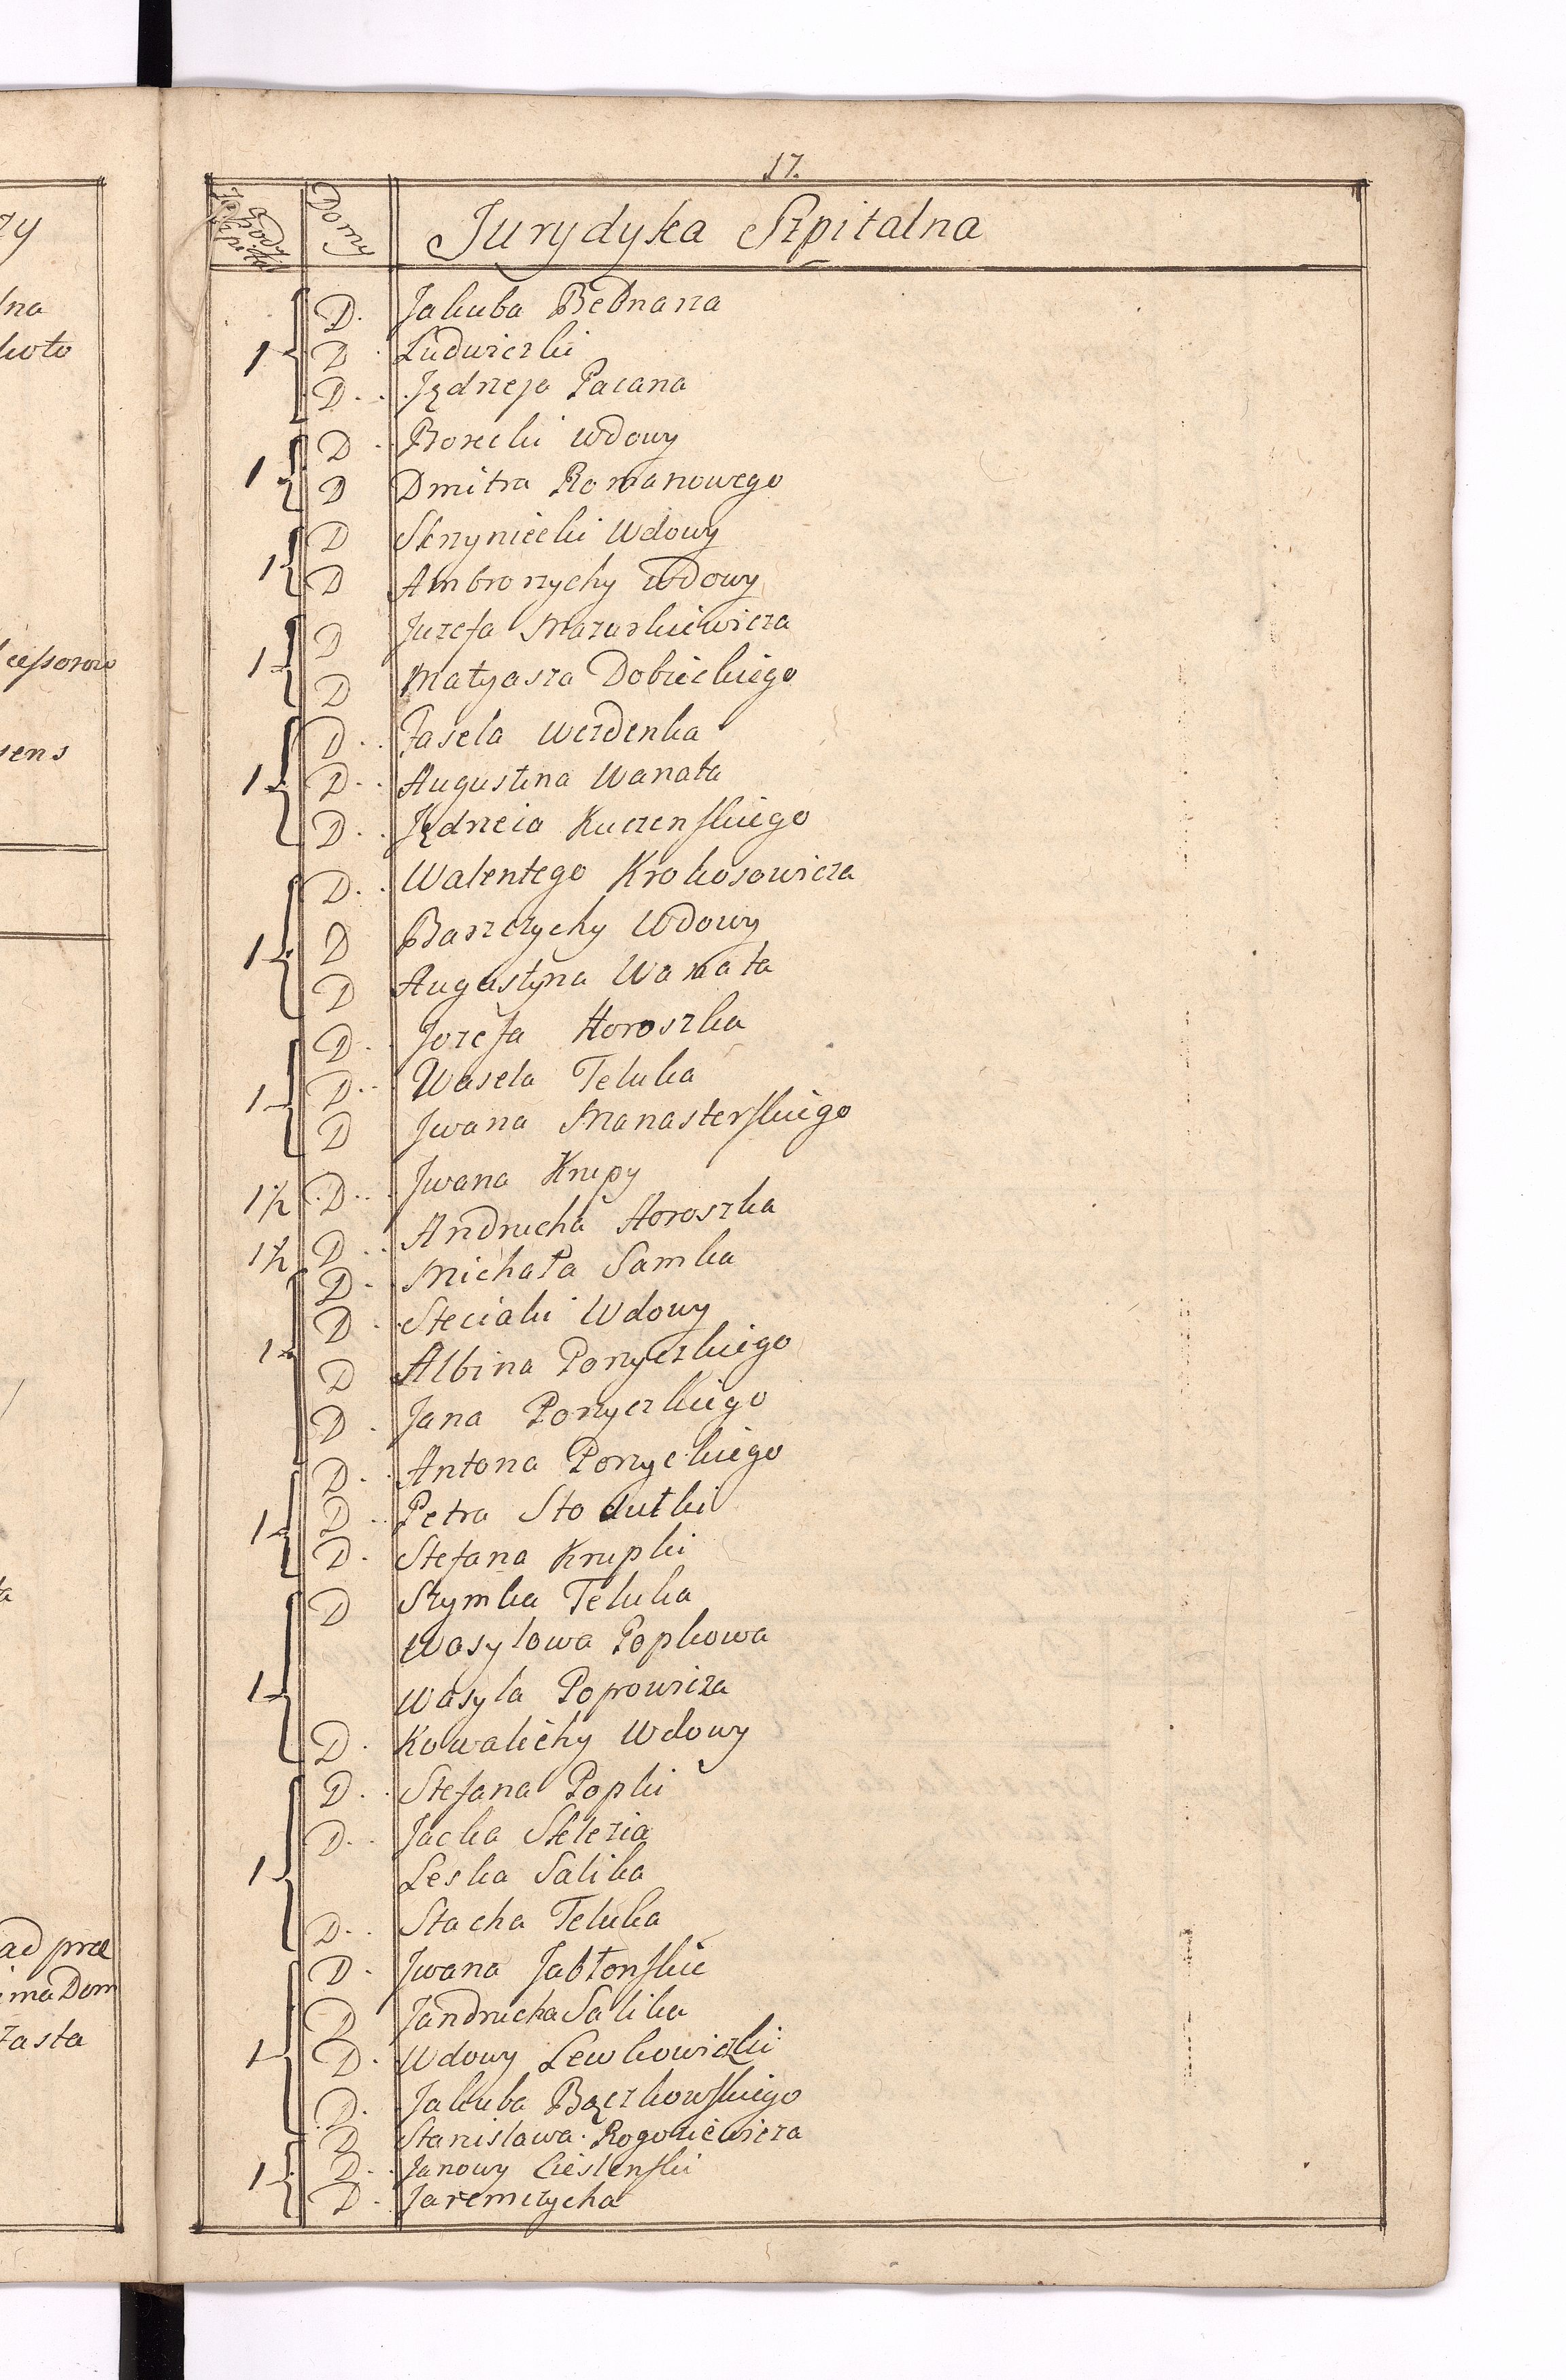 17.
Domy
Jurydyka Szpitalna
D. Jakuba Bednarza
1 D. Ludwiczki
D. Jędrzeja Pacana
D. Borecki Wdowy
1 D Dmitra Romanowego
D Skrzyniecki Wdowy
1 D Ambrozychy Wdowy
D Juzefa Mazurkiewicza
1 D Matyasza Dobieckiego
D. Pasela Werdenka
1 D. Augustina Wanata
D. Jędrzeia Kuczenskiego
D. Walentego Krokosowicza
1 D Baszczychy Wdowy
D Augustyna Wanata
D. Jozefa Horoszka
1 D. Wasela Teluka
D Jwana Manasterskiego
1½ D. Jwana Krupy
1½ D. Andrucha Horoszka
D. Michała Samka
D. Steciaki Wdowy
1 D Albina Porzyczkiego
D. Jana Porzyczkiego
D. Antona Porzyckiego
1 D. Petra Stodułki
D. Stefana Krupki
D Szymka Teluka
Wasylowa Popkowa
1 Wasyla Poprowicza
D. Kowalichy Wdowy
D. Stefana Popki
D. Jacka Sklezia
1 Leska Salika
D. Stacha Teluka
D. Jwana Jabłonskie
D Jandrucha Salika
1 D. Wdowy Lewkowiczki
D. Jakuba Bączkowskiego
D Stanislawa Rogoziewicza
1 D. Janowy Cieslenski
D. Jaremczycha